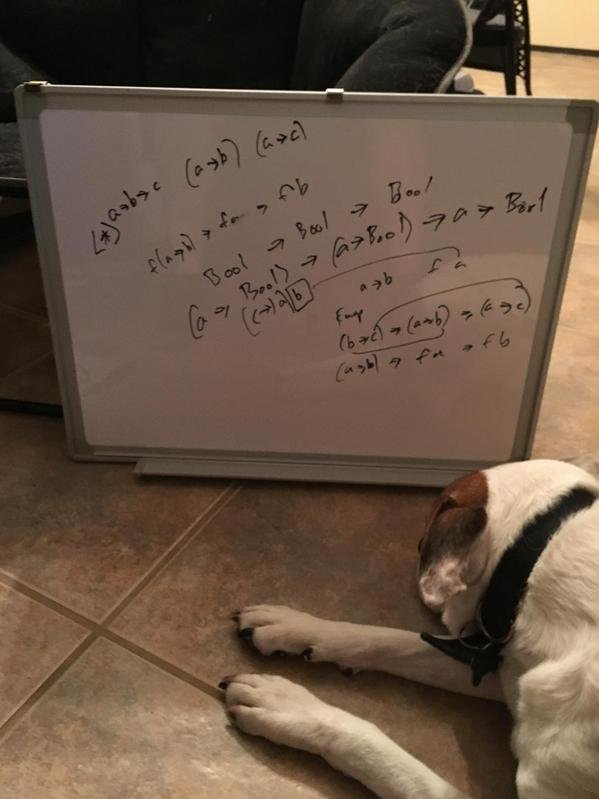 (*) a→b→c (a→b) (a→c)
f(a→b) → fa → fb
Bool → Bool → Bool
(a → Bool) → (a→Bool) → a → Bool
((→) a) b a→b f a
fmap
(b→c) → (a→b) → (a→c)
(a→b) → fa → fb